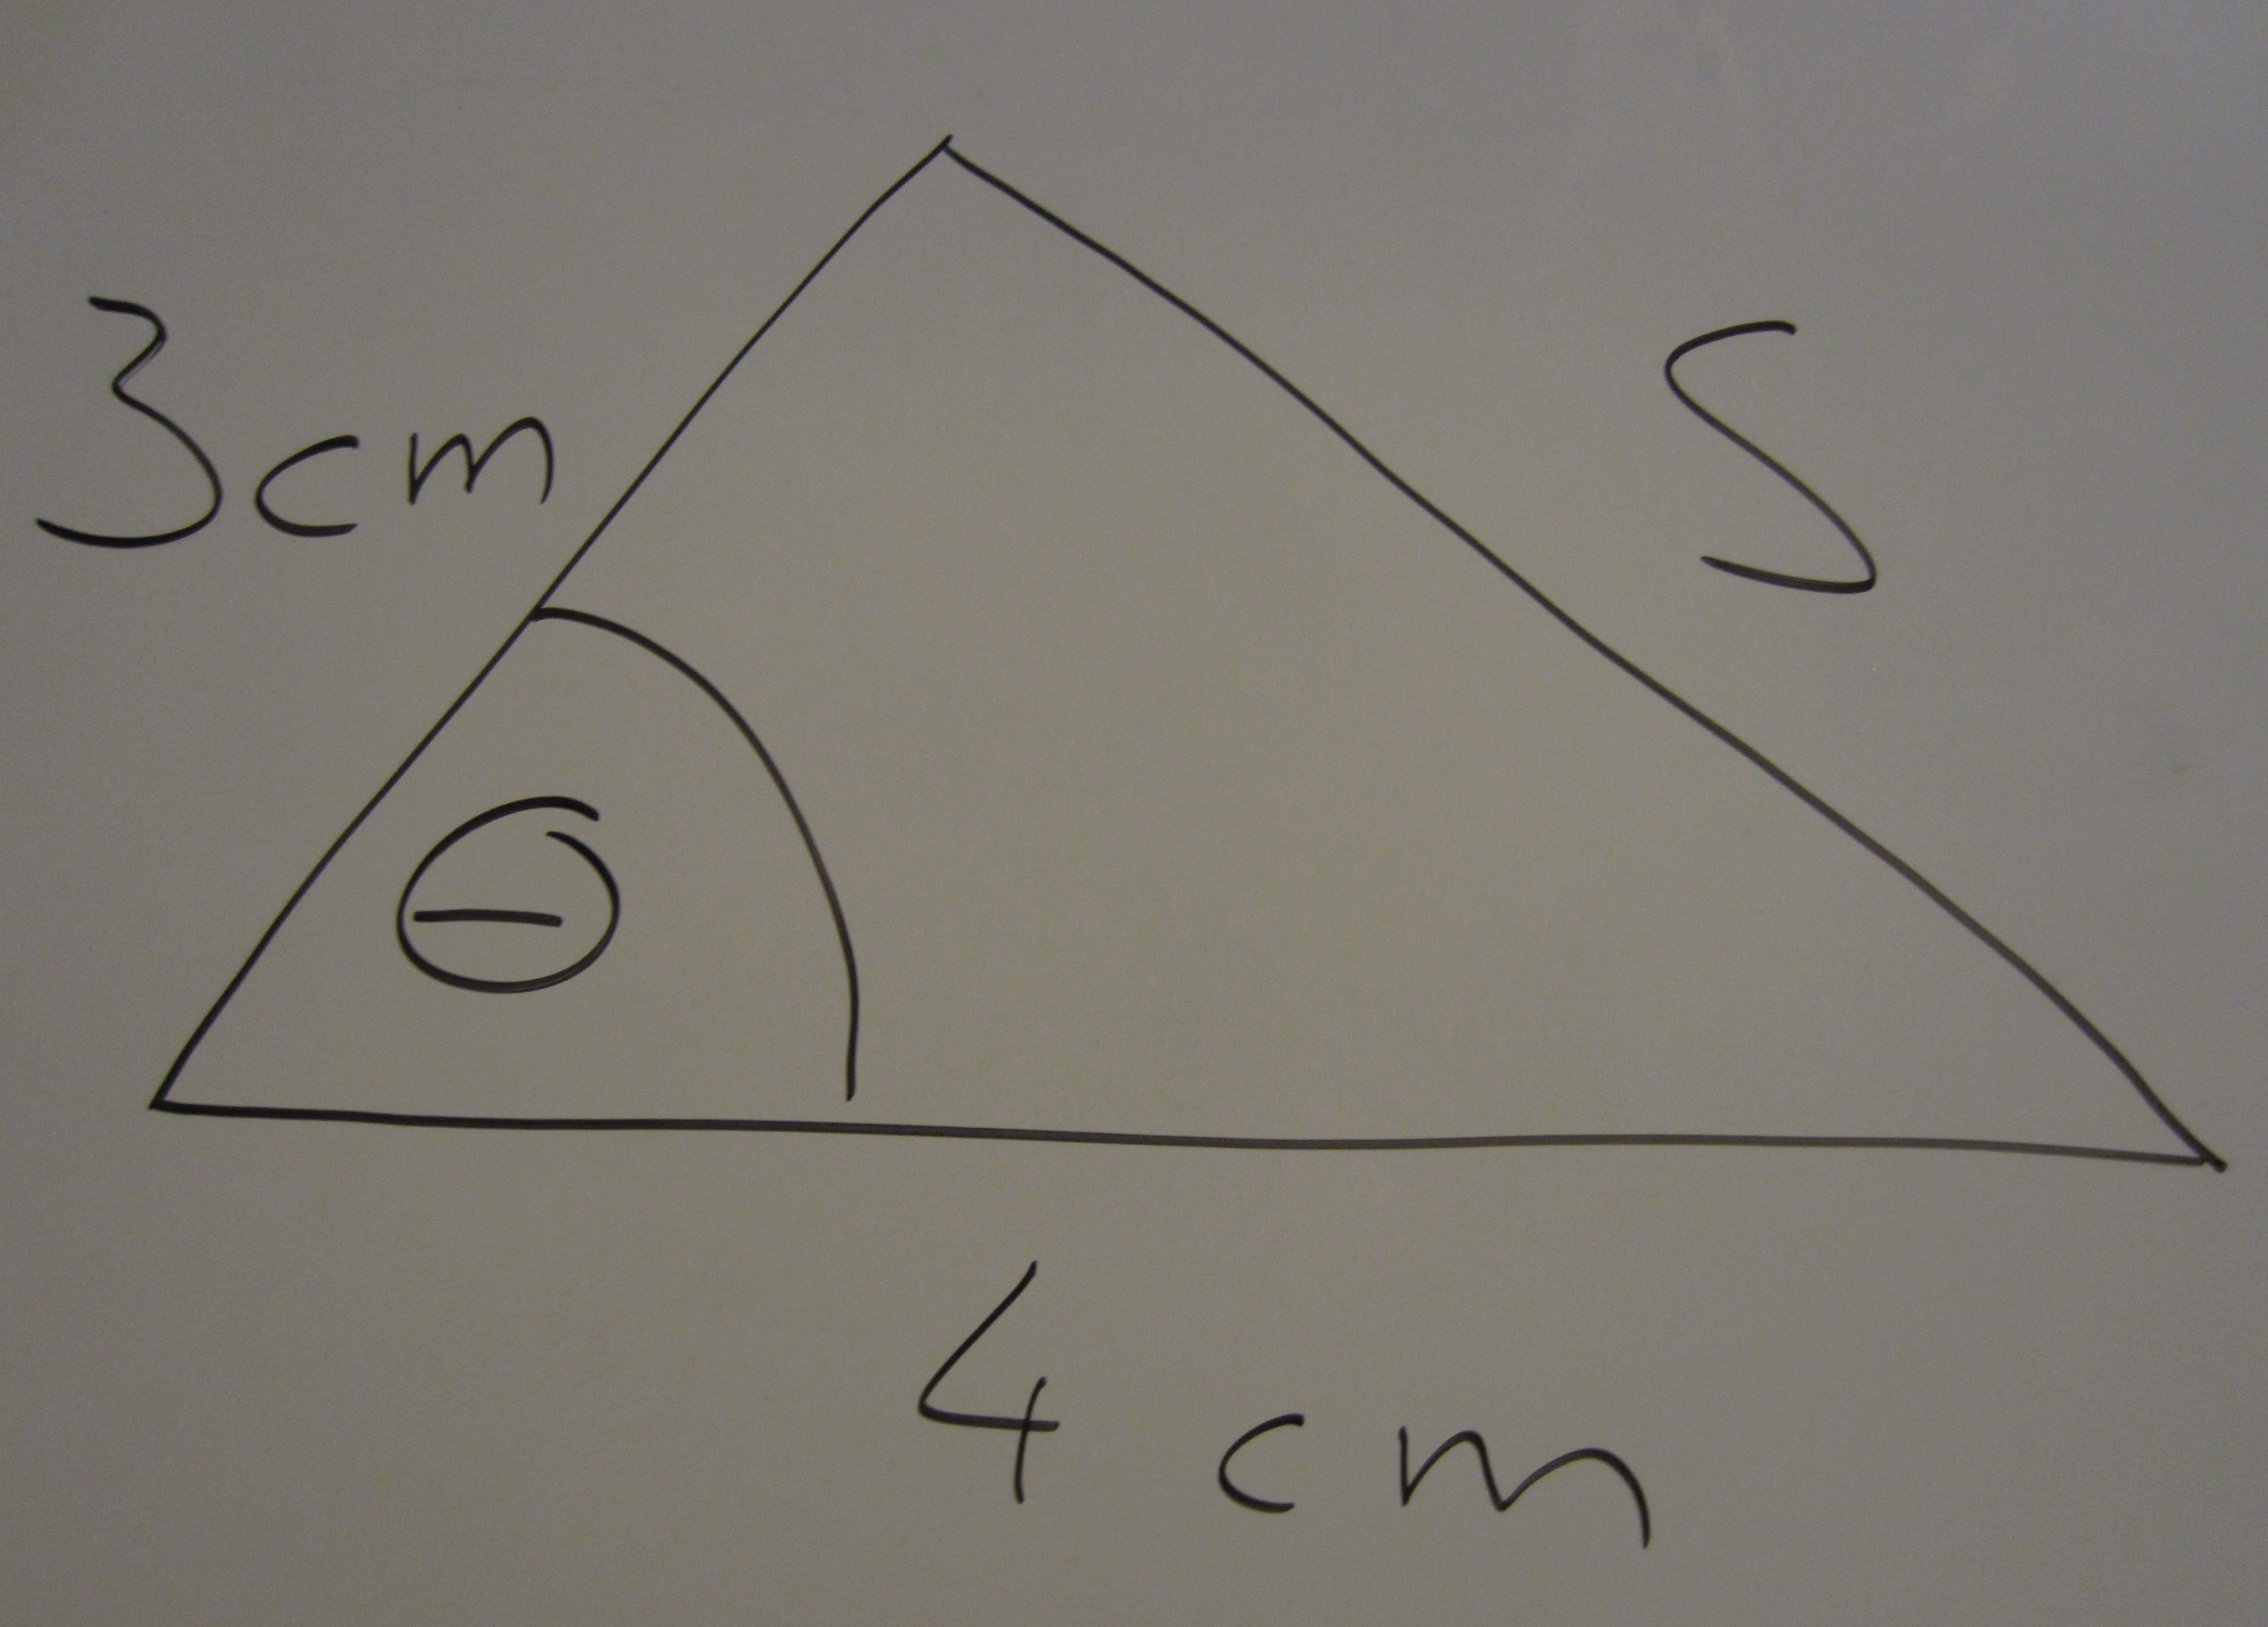 3cm
S
Θ
4 cm